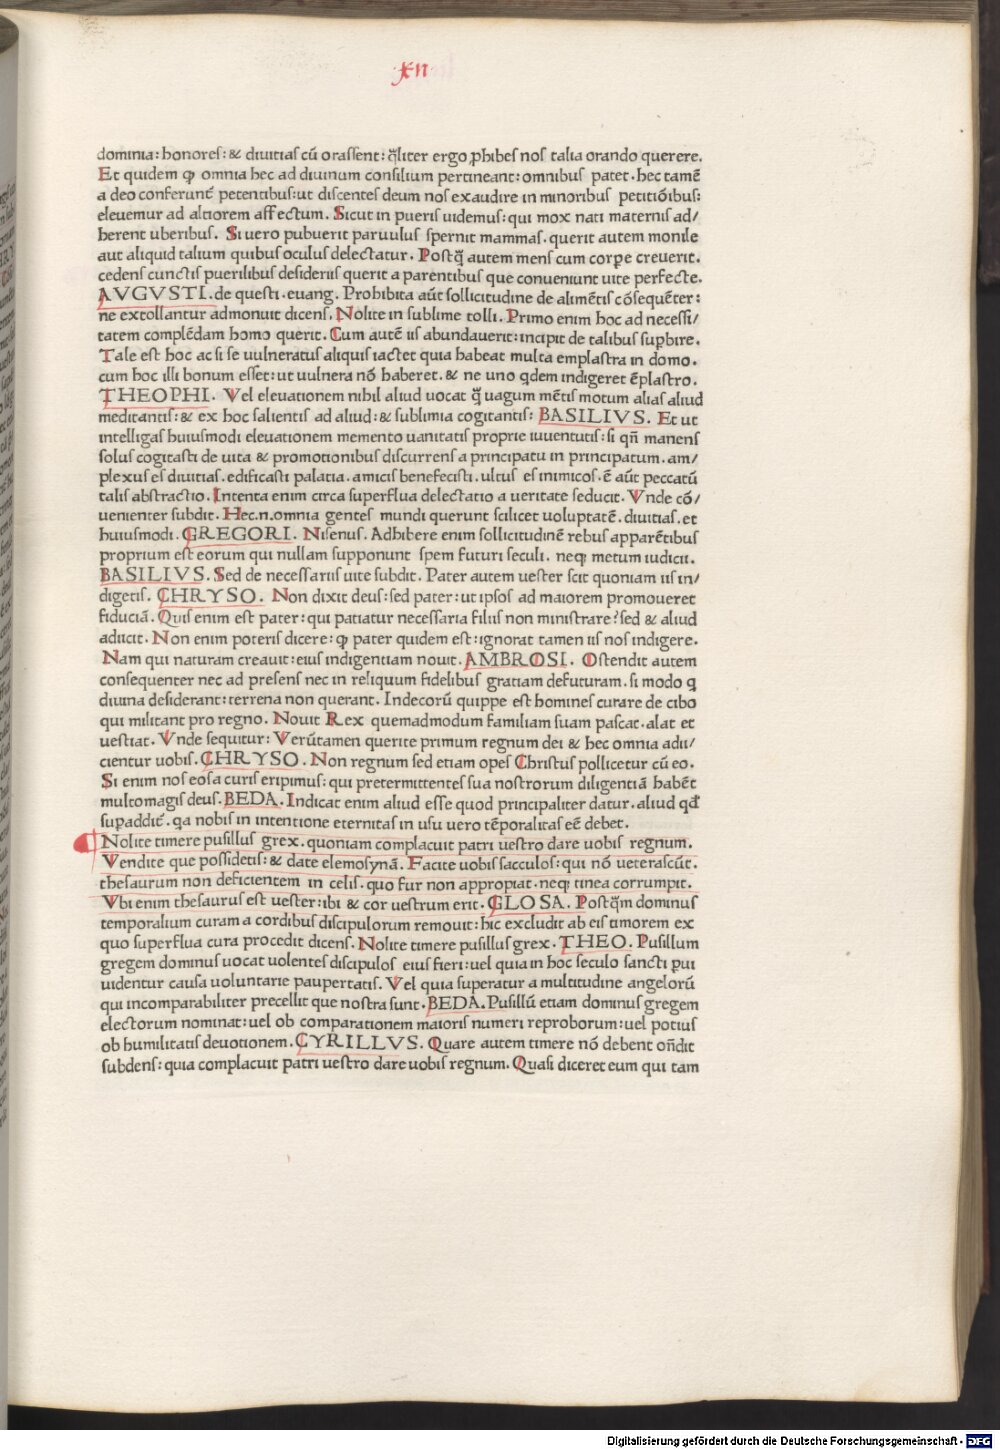 xii
dominia: honores: & diuitias cū orassent: q̄liter ergo ꝓhibes nos talia orando querere.
Et quidem ꝙ omnia hec ad diuinum consilium pertineant: omnibus patet. hec tamē
a deo conferunt̄ petentibus: ut discentes deum nos exaudire in minoribus petitiōibus:
eleuemur ad altiorem affectum. Sicut in pueris uidemus: qui mox nati maternis ad/
herent uberibus. Si uero pubuerit paruulus spernit mammas. querit autem monile
aut aliquid talium quibus oculus delectatur. Postq̄ autem mens cum corꝑe creuerit.
cedens cunctis puerilibus desideriis querit a parentibus que conueniunt uite perfecte.
AVGVSTI. de questi. euang. Prohibita aūt sollicitudine de alimētis cōsequēter:
ne extollantur admonuit dicens. Nolite in sublime tolli. Primo enim hoc ad necessi/
tatem complēdam homo querit. Cum autē iis abundauerit: incipit de talibus suꝑbire.
Tale est hoc ac si se uulneratus aliquis iactet quia habeat multa emplastra in domo.
cum hoc illi bonum esset: ut uulnera nō haberet. & ne uno qdem indigeret ēplastro.
THEOPHI. Vel eleuationem nihil aliud uocat q̄ uagum mētis motum alias aliud
meditantis: & ex hoc salientis ad aliud: & sublimia cogitantis: BASILIVS. Et ut
intelligas huiusmodi eleuationem memento uanitatis proprie iuuentutis: si qn̄ manens
solus cogitasti de uita & promotionibus discurrens a principatu in principatum. am/
plexus es diuitias. edificasti palatia. amicis benefecisti. ultus es inimicos. ē aūt peccatū
talis abstractio. Intenta enim circa superflua delectatio a ueritate seducit. Vnde cō/
uenienter subdit. Hec.n.omnia gentes mundi querunt scilicet uoluptatē. diuitias. et
huiusmodi. GREGORI. Nisenus. Adhibere enim sollicitudinē rebus apparētibus
proprium est eorum qui nullam supponunt spem futuri seculi. neqꝫ metum iudicii.
BASILIVS. Sed de necessariis uite subdit. Pater autem uester scit quoniam iis in/
digetis. CHRYSO. Non dixit deus: sed pater: ut ipsos ad maiorem promoueret
fiduciā. Quis enim est pater: qui patiatur necessaria filiis non ministrare? sed & aliud
adiicit. Non enim poteris dicere: ꝙ pater quidem est: ignorat tamen iis nos indigere.
Nam qui naturam creauit: eius indigentiam nouit. AMBROSI. Ostendit autem
consequenter nec ad presens nec in reliquum fidelibus gratiam defuturam. si modo q
diuina desiderant: terrena non querant. Indecorū quippe est homines curare de cibo
qui militant pro regno. Nouit Rex quemadmodum familiam suam pascat. alat et
uestiat. Vnde sequitur: Verūtamen querite primum regnum dei & hec omnia adii/
cientur uobis. CHRYSO. Non regnum sed etiam opes Christus pollicetur cū eo.
Si enim nos eos a curis eripimus: qui pretermittentes sua nostrorum diligentiā habēt
multomagis deus. BEDA. Indicat enim aliud esse quod principaliter datur. aliud qd̄
suꝑaddit̄. qa nobis in intentione eternitas in usu uero tēporalitas eē debet.
Nolite timere pusillus grex. quoniam complacuit patri uestro dare uobis regnum.
Vendite que possidetis: & date elemosynā. Facite uobis sacculos: qui nō ueterascūt.
thesaurum non deficientem in celis. quo fur non appropiat. neqꝫ tinea corrumpit.
Vbi enim thesaurus est uester: ibi & cor uestrum erit. GLOSA. Postq̄m dominus
temporalium curam a cordibus discipulorum remouit: hic excludit ab eis timorem ex
quo superflua cura procedit dicens. Nolite timere pusillus grex. THEO. Pusillum
gregem dominus uocat uolentes discipulos eius fieri: uel quia in hoc seculo sancti pui
uidentur causa uoluntarie paupertatis. Vel quia superatur a multitudine angelorū
qui incomparabiliter precellit que nostra sunt. BEDA. Pusillū etiam dominus gregem
electorum nominat: uel ob comparationem maioris numeri reproborum: uel potius
ob humilitatis deuotionem. CYRILLVS. Quare autem timere nō debent on̄dit
subdens: quia complacuit patri uestro dare uobis regnum. Quasi diceret eum qui tam
Digitalisierung gefördert durch die Deutsche Forschungsgemeinschaft - DFG